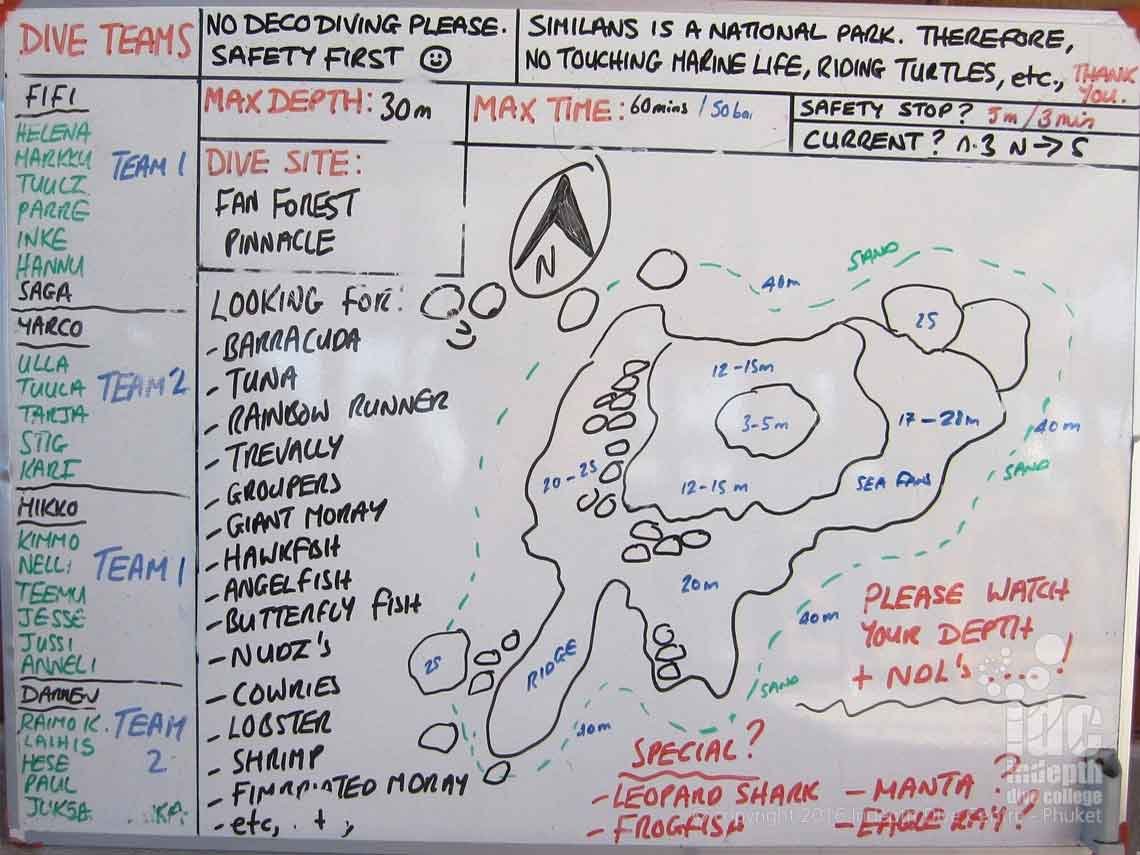 DIVE TEAMS
NO DECO DIVING PLEASE.
SAFETY FIRST
SIMILANS IS A NATIONAL PARK. THEREFORE,
NO TOUCHING MARINE LIFE, RIDING TURTLES, etc., THANK
YOU.
FIFI
HELENA
MARKKU
PARRE
INKE
HANNU
SAGA
TEAM 1
YARCO
ULLA
TUULA
TARJA
STIG
KARI
TEAM 2
MIKKO
KIMMO
NELLI
TEEMU
JESSE
JUSSI
ANNELI
TEAM 1
DARREN
RAIMO K.
LAIHIS
HESE
PAUL
JUKSA
TEAM
2
MAX DEPTH: 30m
MAX TIME: 60mins / 50ba
SAFETY STOP? 5m / 3min
CURRENT? N → S
DIVE SITE:
FAN FOREST
PINNACLE
LOOKING FOR:
- BARRACUDA
- TUNA
- RAINBOW RUNNER
- TREVALLY
- GROUPERS
- GIANT MORAY
- HAWKFISH
- ANGELFISH
- BUTTERFLY FISH
- NUDI'S
- COWRIES
- LOBSTER
- SHRIMP
- MORAY
- etc,
N
40m
SAND
25
12-15m
3-5m
17-28m
40m
20-25
SAND
12-15m
SEA FANS
20m
40m
25
RIDGE
SAND
PLEASE WATCH
YOUR DEPTH
+ NDL's ....!
SPECIAL?
- LEOPARD SHARK
- FROGFISH
- MANTA ?
- EAGLE RAY?
idc
indepth
dive college